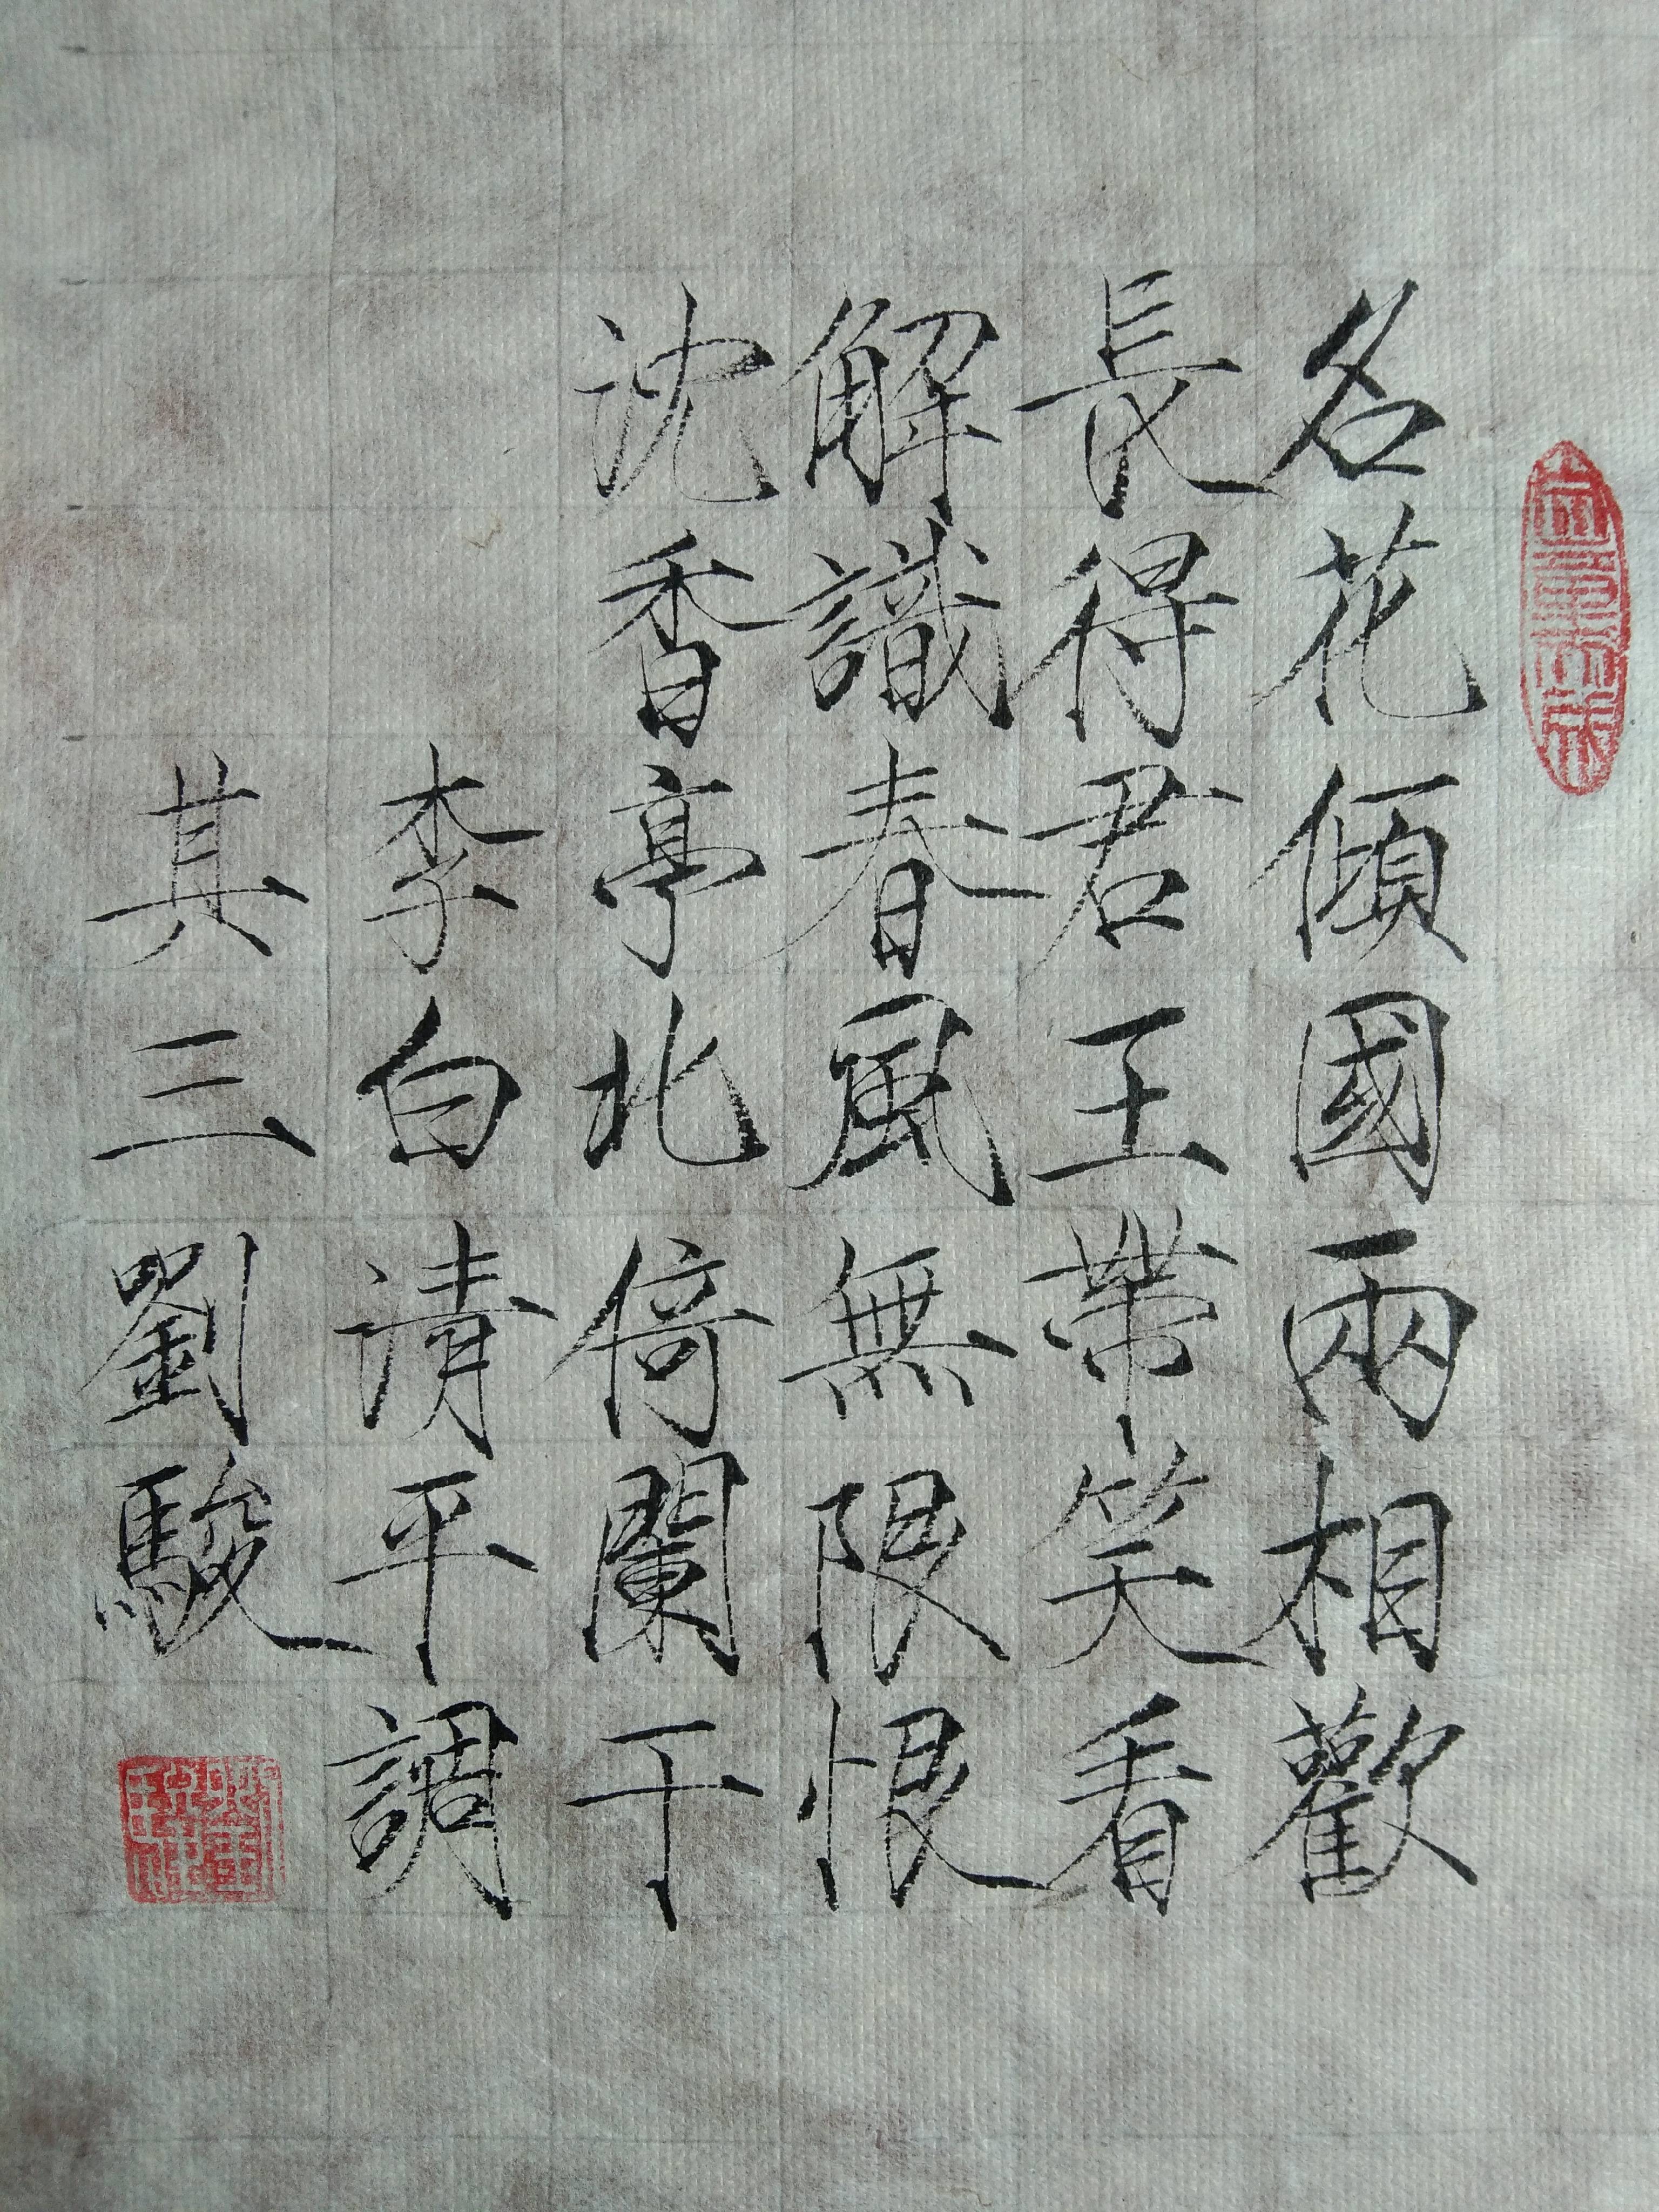 名花傾國兩相歡
長得君王帶笑看
解識春風無限恨
沈香亭北倚闌干
李白清平調
其三劉駿